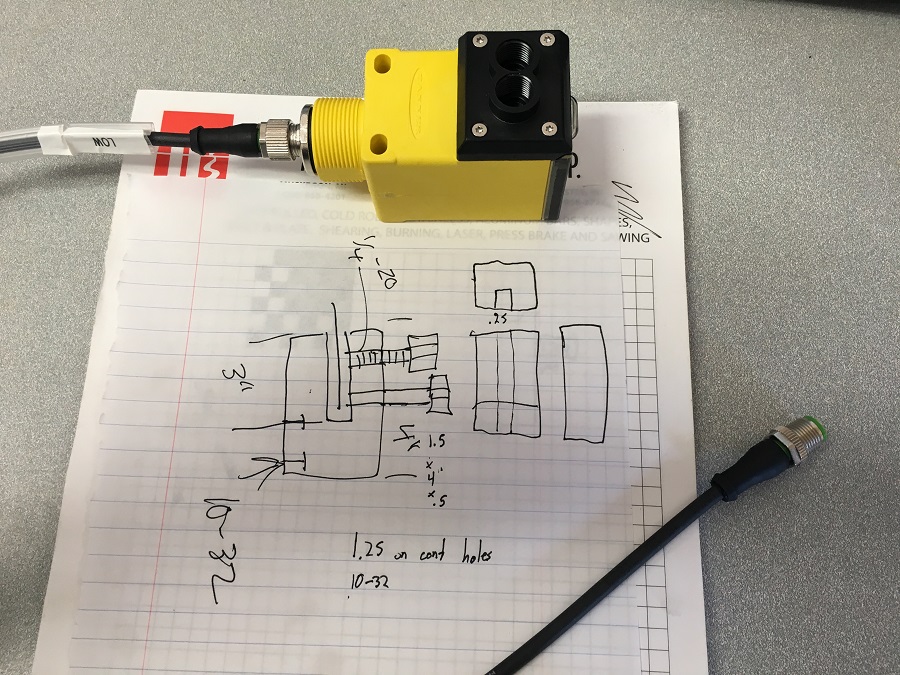 LOW
T.
ES,
COLD RO
SHEARING, BURNING, LASER, PRESS BRAKE AND SAWING
1/4-20
.25
3"
1.5
x
4"
x .5
10-32
1.25 on cont holes
10-32